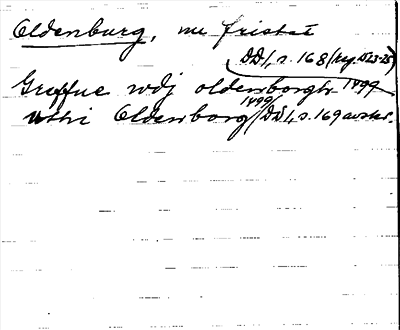 Oldenburg, nu fristat
DD 1, s. 168 (reg. 1523-25)
Greffue wdj oldenborgh 1499
uthi Oldenborg 1499 / DD 1, s. 169 avskr.